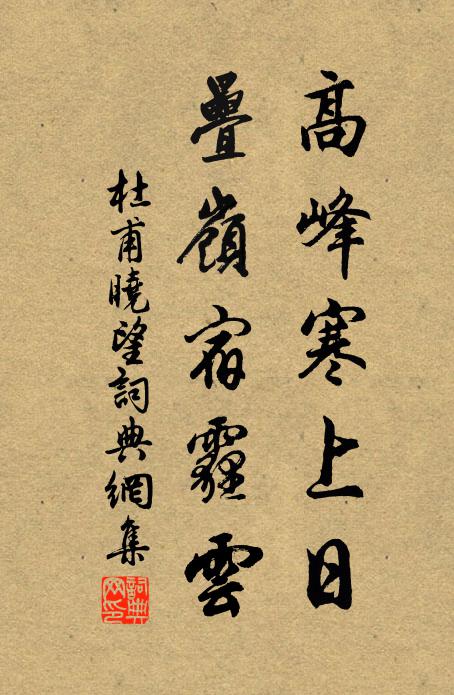 高峰寒上日
疊嶺宿霾雲
杜甫曉望詞典網集
詞典网印